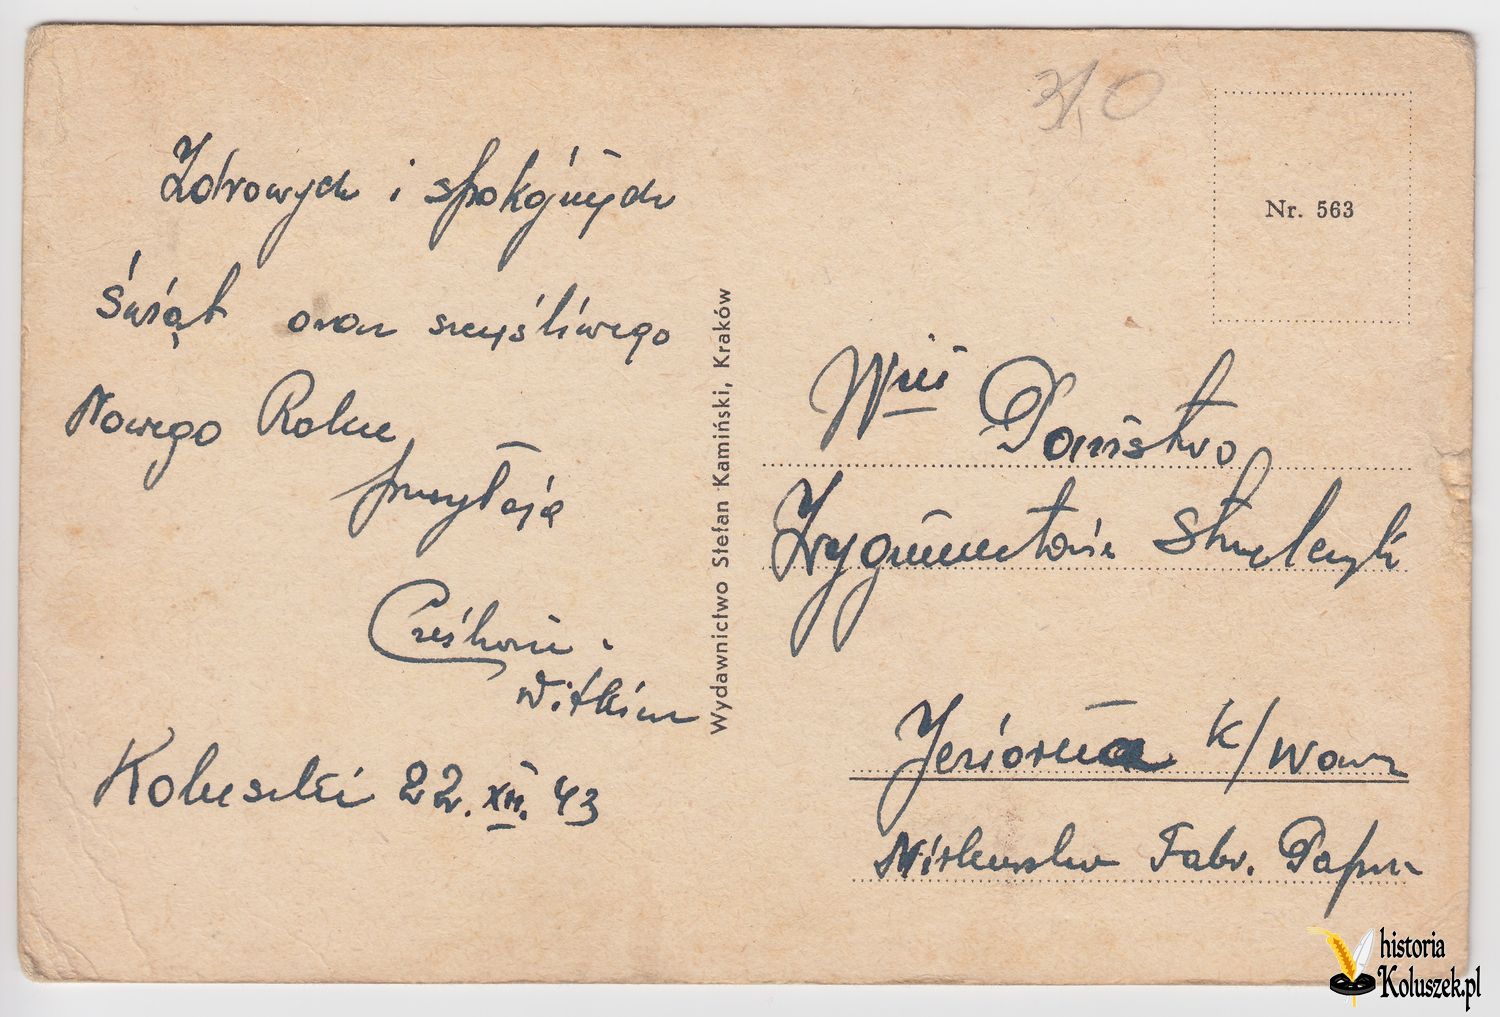 Zdrowych i spokojnych
Świąt oraz szczęśliwego
Nowego Roku,
przesyłają
Cześkowie
Koluszki 22.XII.43
Wydawnictwo Stefan Kamiński, Kraków
3,0
Nr. 563
Państwo
Zygmuntowie
Jeziorna k/Warsz
Mirkowska Fabr. Papieru
historia
Koluszek.pl